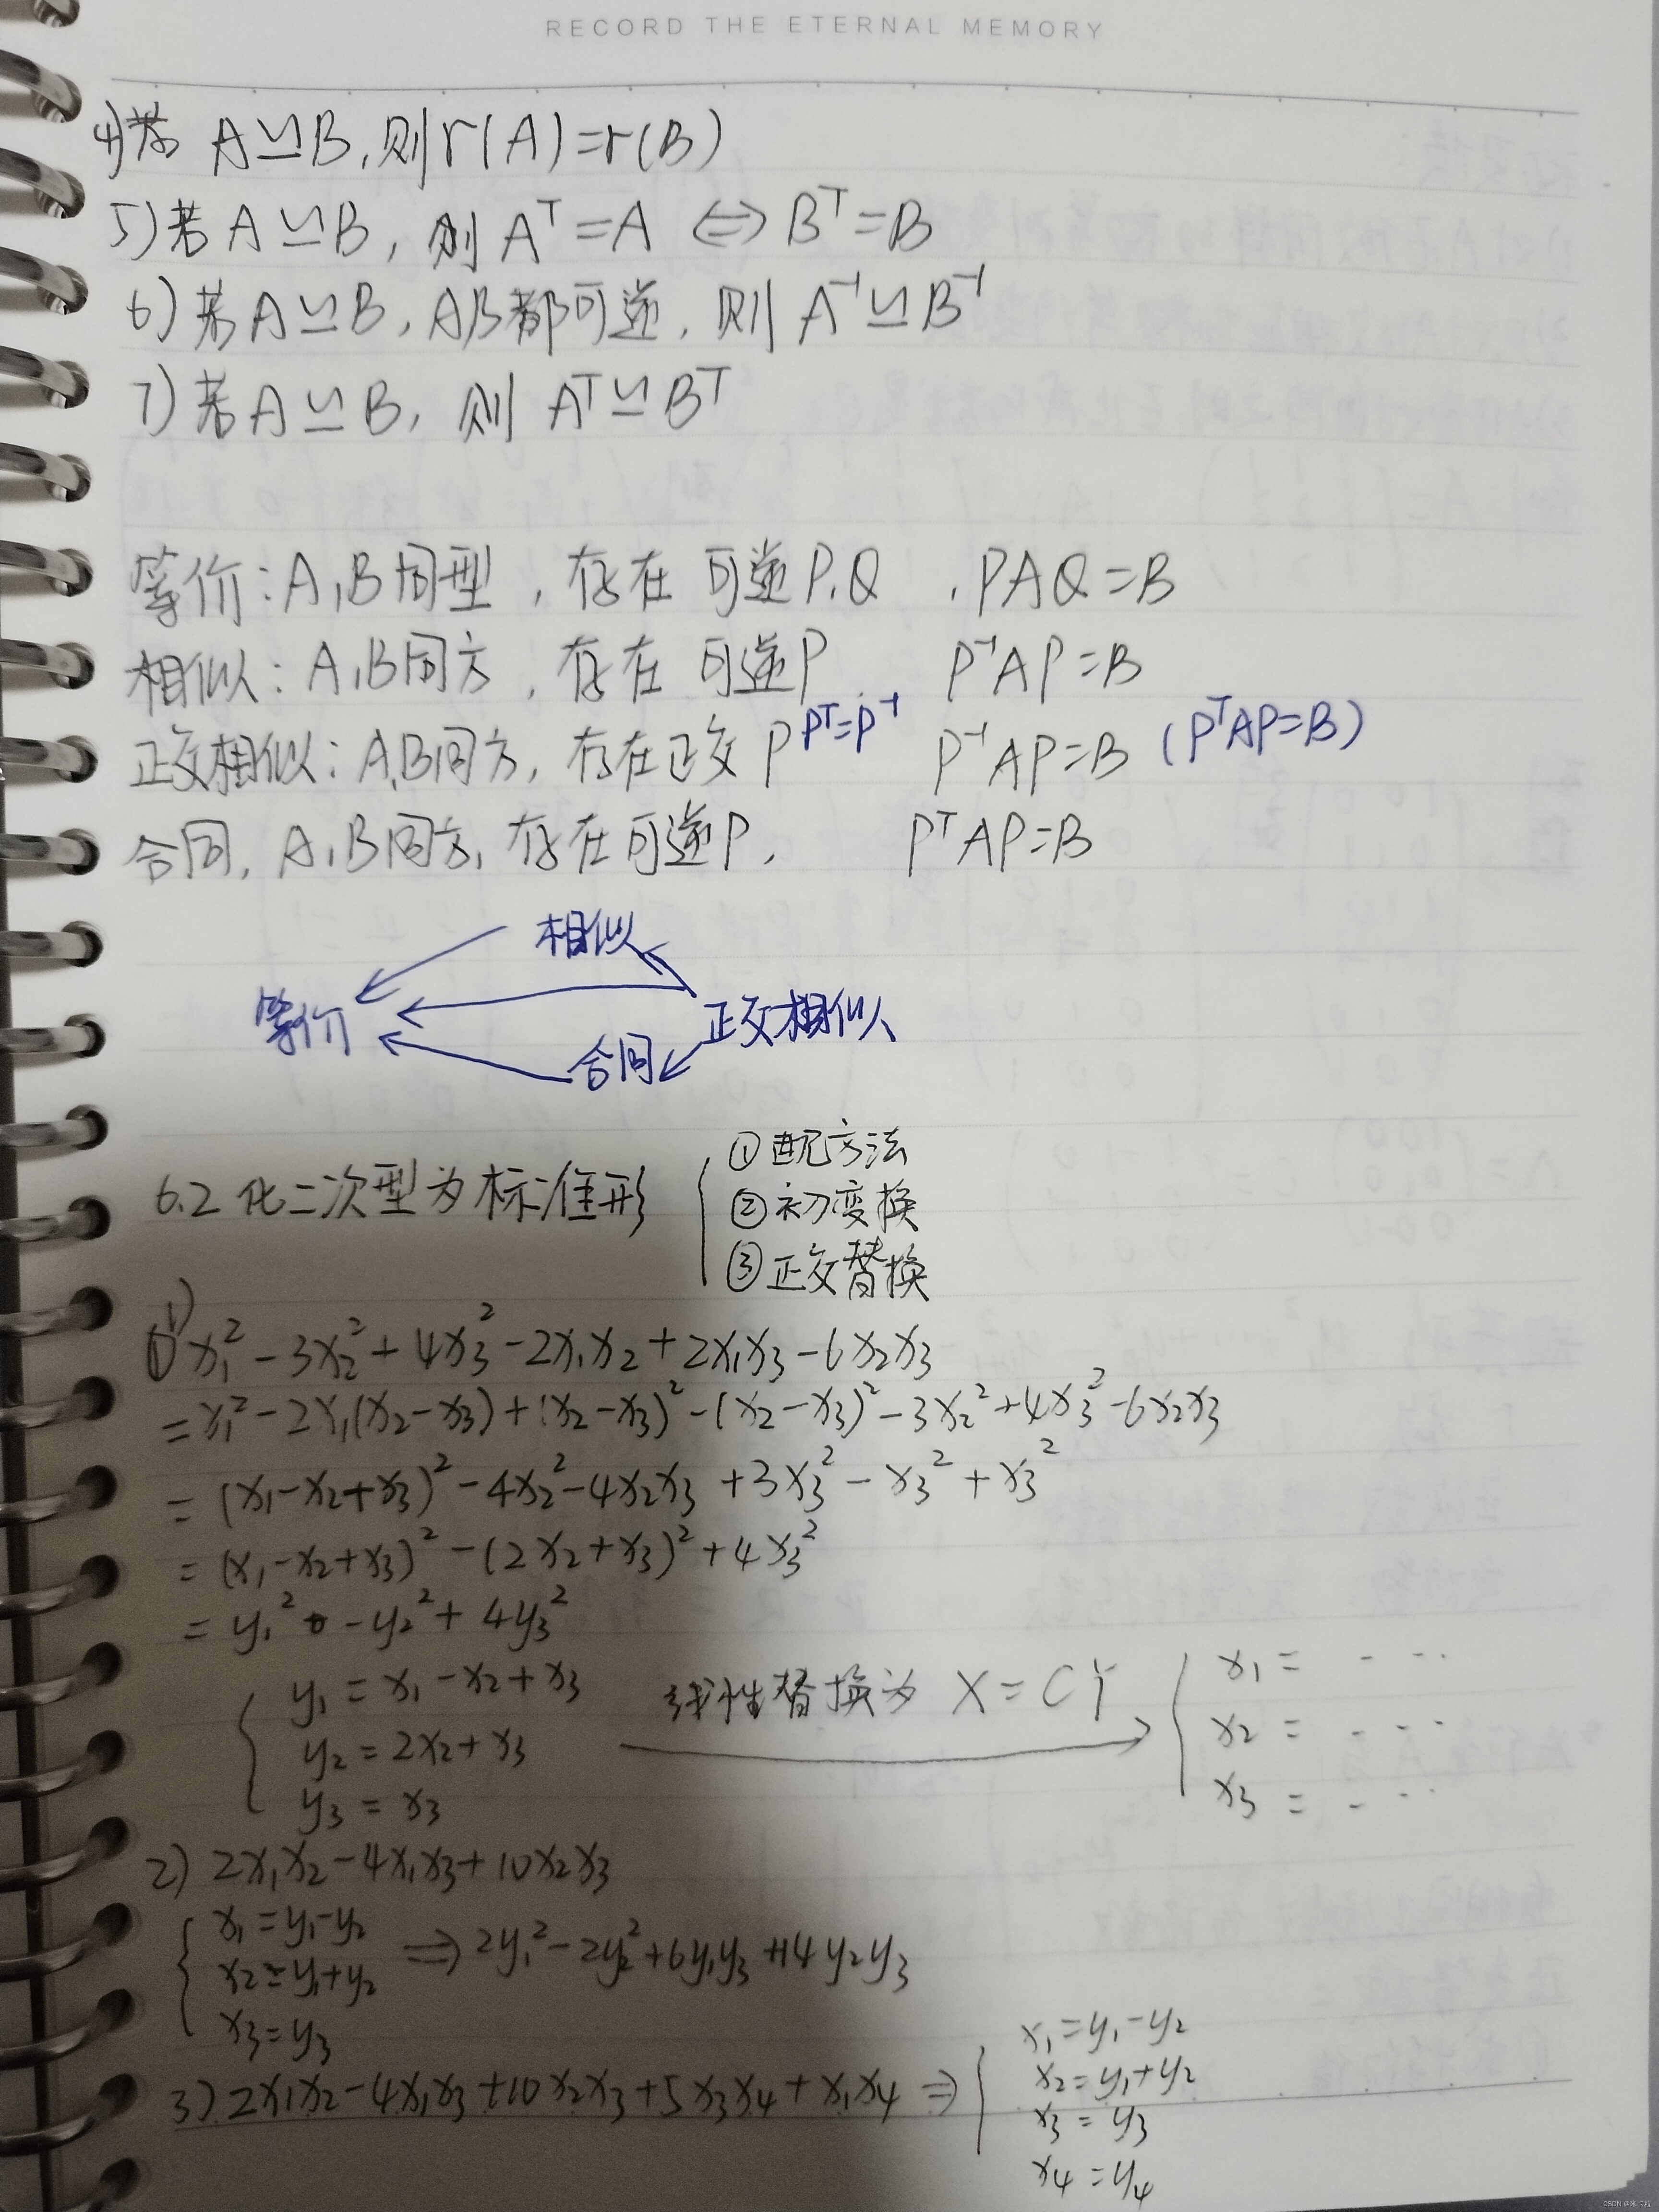 RECORD THE ETERNAL MEMORY
4)若 A≃B,则r(A)=r(B)
5)若 A≃B, 则 Aᵀ=A ⇔ Bᵀ=B
6)若 A≃B, A,B都可逆, 则 A⁻¹≃B⁻¹
7)若 A≃B, 则 Aᵀ≃Bᵀ
等价:A,B同型, 存在 可逆P,Q , PAQ=B
相似:A,B同方, 存在 可逆P P⁻¹AP=B
正交相似:A,B同方, 存在正交 P Pᵀ=P⁻¹ P⁻¹AP=B (PᵀAP=B)
合同, A,B同方, 存在可逆P, PᵀAP=B
相似
等价 正交相似
合同
6.2 化二次型为标准形
①配方法
②初变换
③正交替换
① 1) x₁²-3x₂²+4x₃²-2x₁x₂+2x₁x₃-6x₂x₃
=x₁²-2x₁(x₂-x₃)+(x₂-x₃)²-(x₂-x₃)²-3x₂²+4x₃²-6x₂x₃
=(x₁-x₂+x₃)²-4x₂²-4x₂x₃+3x₃²-x₃²+x₃²
=(x₁-x₂+x₃)²-(2x₂+x₃)²+4x₃²
=y₁²-y₂²+4y₃²
y₁=x₁-x₂+x₃ 线性替换为 X=CY x₁= ---
y₂=2x₂+x₃ → x₂= ---
y₃=x₃ x₃= ---
2) 2x₁x₂-4x₁x₃+10x₂x₃
x₁=y₁-y₂
x₂=y₁+y₂ ⇒ 2y₁²-2y₂²+6y₁y₃+14y₂y₃
x₃=y₃
3) 2x₁x₂-4x₁x₃+10x₂x₃+5x₃x₄+x₁x₄ ⇒
x₁=y₁-y₂
x₂=y₁+y₂
x₃=y₃
x₄=y₄